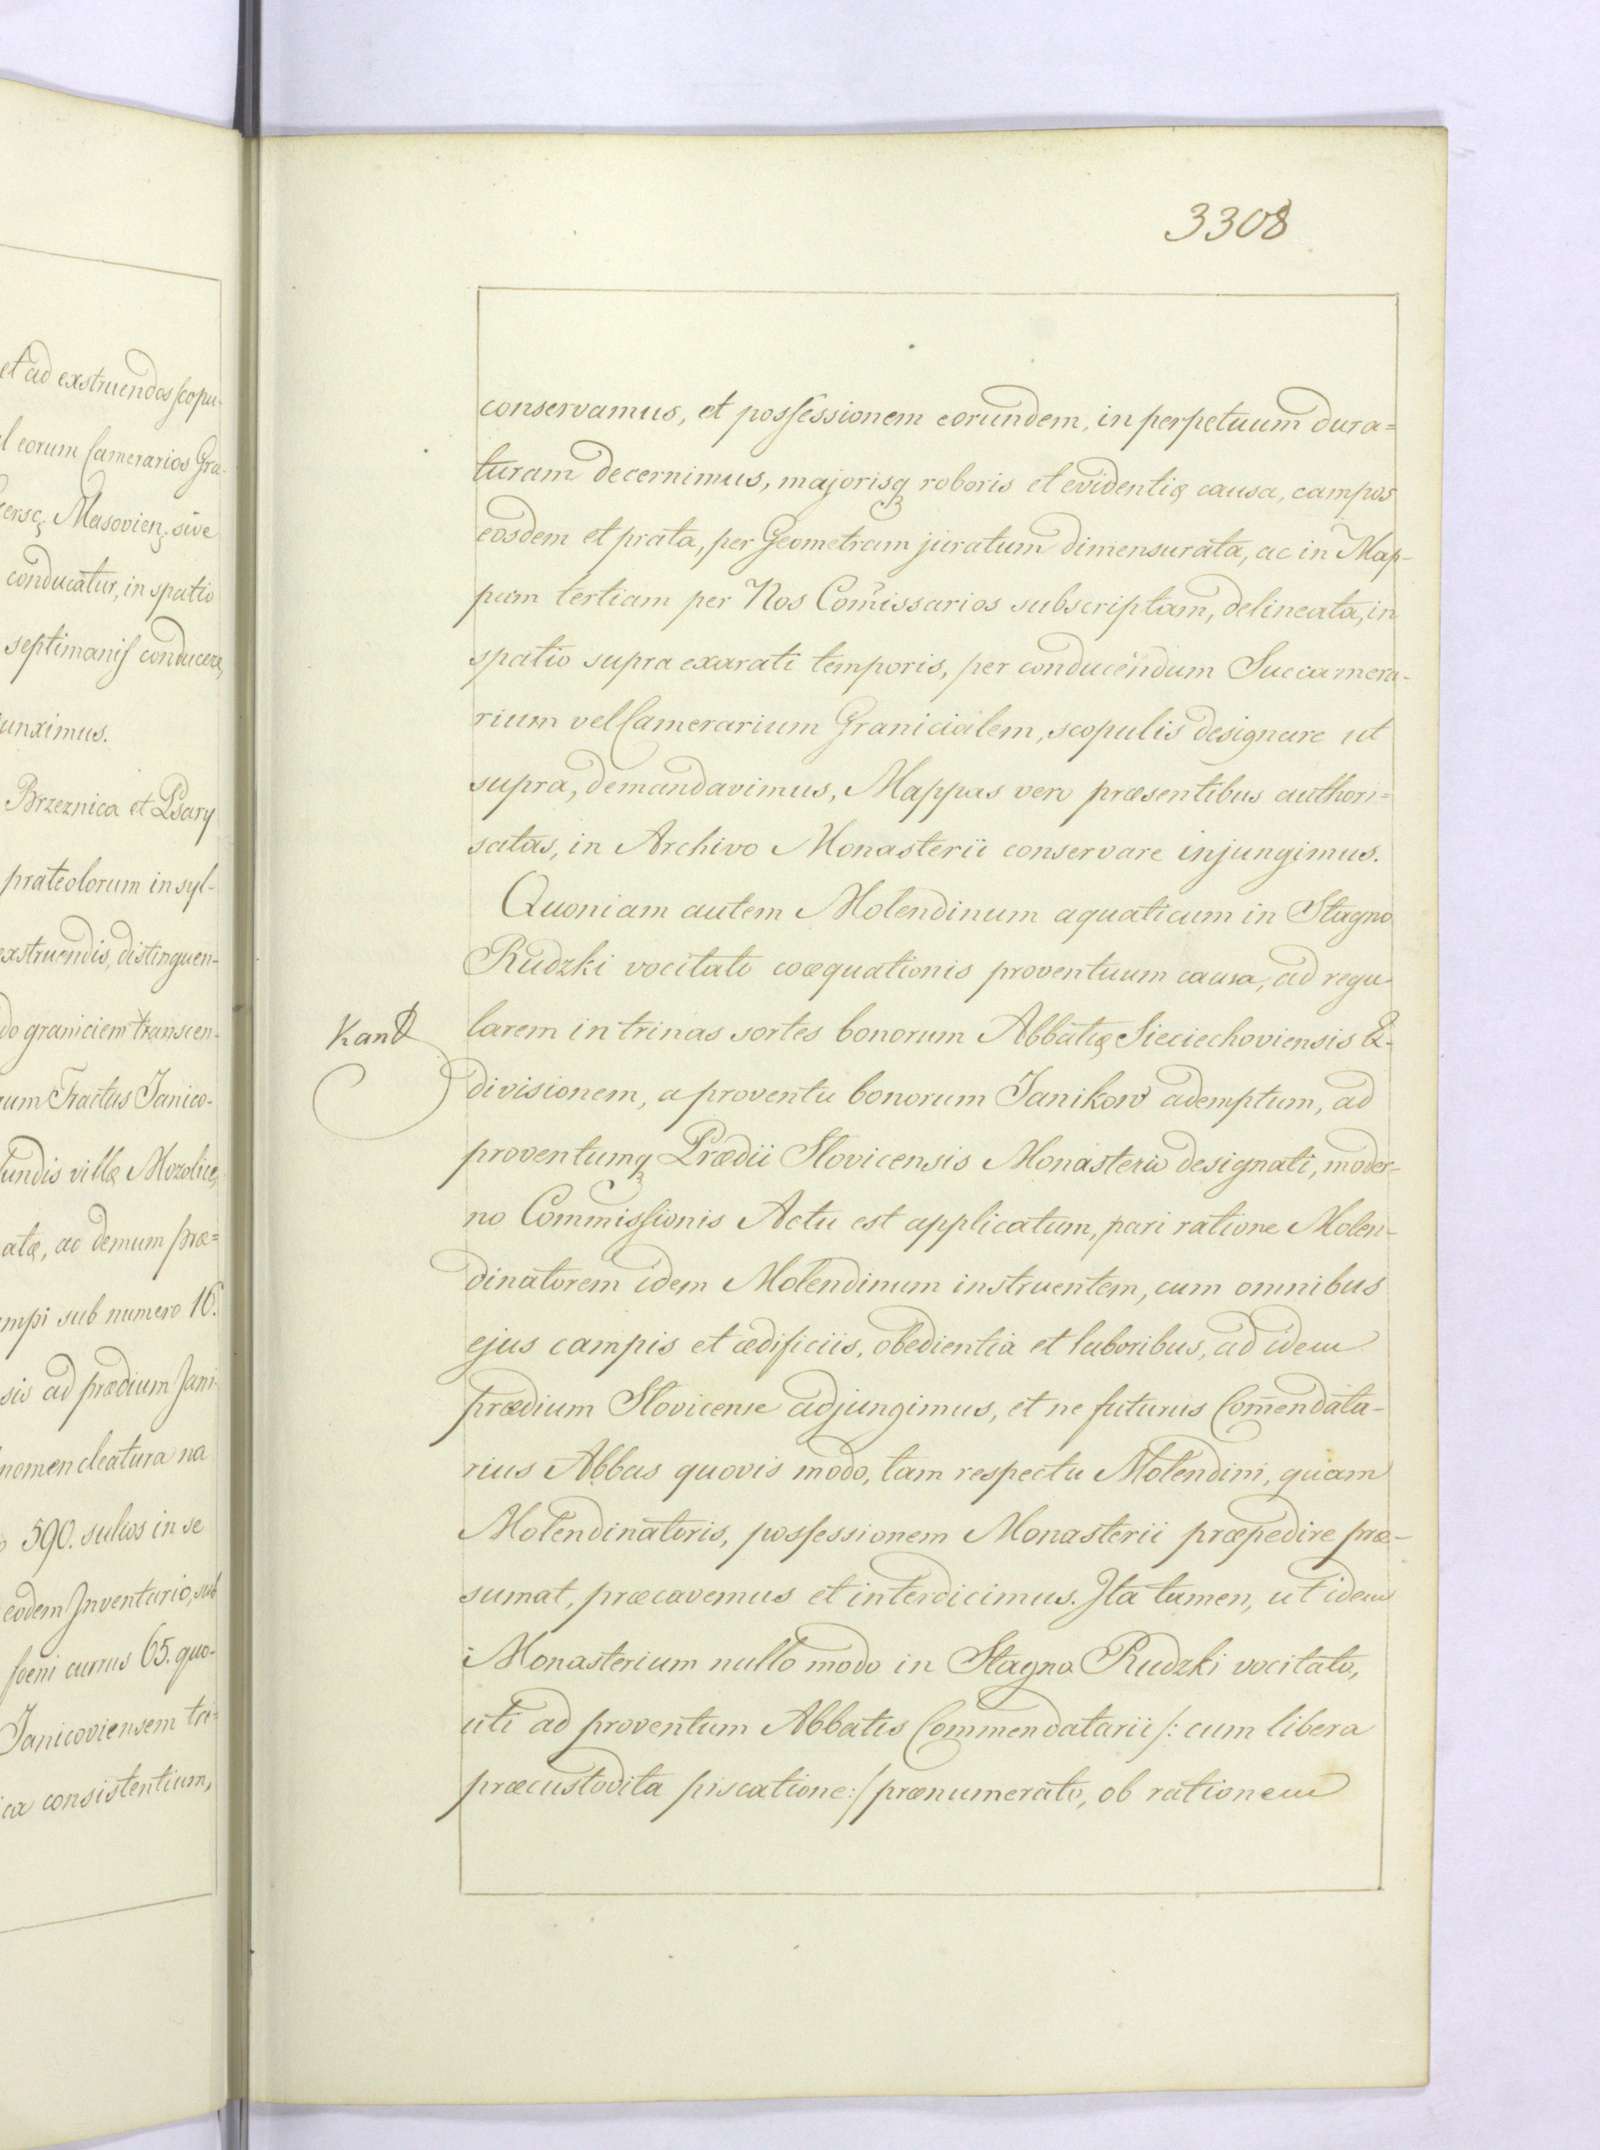 et ad exstruendos scopu-
l eorum Camerarios Gra-
Masovien, sive
conducatur, in spatio
septimanis conducere,
unximus.
Brzeznica et Psary
prateolorum in syl-
exstruendis, distinguen-
do graniciem transcen-
rum Tractus Janico-
fundis villæ Mozolice,
atæ, ac demum præ=
mpi sub numero 16.
sis ad prædium Jani-
nomencleatura na
590. sulcos in se
eodem Inventario, sub
foeni currus 65. quo-
Janicoviensem tra-
ca consistentium,
3308
conservamus, et possessionem eorundem, in perpetuum dura=
turam decernimus, majorisq roboris et evidentiæ causa, campos
eosdem et prata, per Geometram juratum dimensurata, ac in Map-
pam tertiam per Nos Com̄issarios subscriptam, delineata, in
spatio supra exarati temporis, per conducendum Succamera-
rium vel Camerarium Granicialem, scopulis designare ut
supra, demandavimus, Mappas vero præsentibus authori=
satas, in Archivo Monasterii conservare injungimus.
Quoniam autem Molendinum aquaticum in Stagno
Rudzki vocitato coæquationis proventuum causa, ad regu
larem in trinas sortes bonorum Abbatiæ Sieciechoviensis
Kand
divisionem, a proventu bonorum Janikow ademptum, ad
proventumq Prædii Slovicensis Monasterio designati, moder-
no Commissionis Actu est applicatum, pari ratione Molen-
dinatorem idem Molendinum instruentem, cum omnibus
ejus campis et ædificiis, obedientia et laboribus, ad idem
prædium Slovicense adjungimus, et ne futurus Com̄endata-
rius Abbas quovis modo, tam respectu Molendini, quam
Molendinatoris, possessionem Monasterii præpedire præ-
sumat, præcavemus et interdicimus. Ita tamen, ut idem
Monasterium nullo modo in Stagno Rudzki vocitato,
uti ad proventum Abbatis Commendatarii /: cum libera
præcustodita piscatione :/ prænumerato, ob rationem